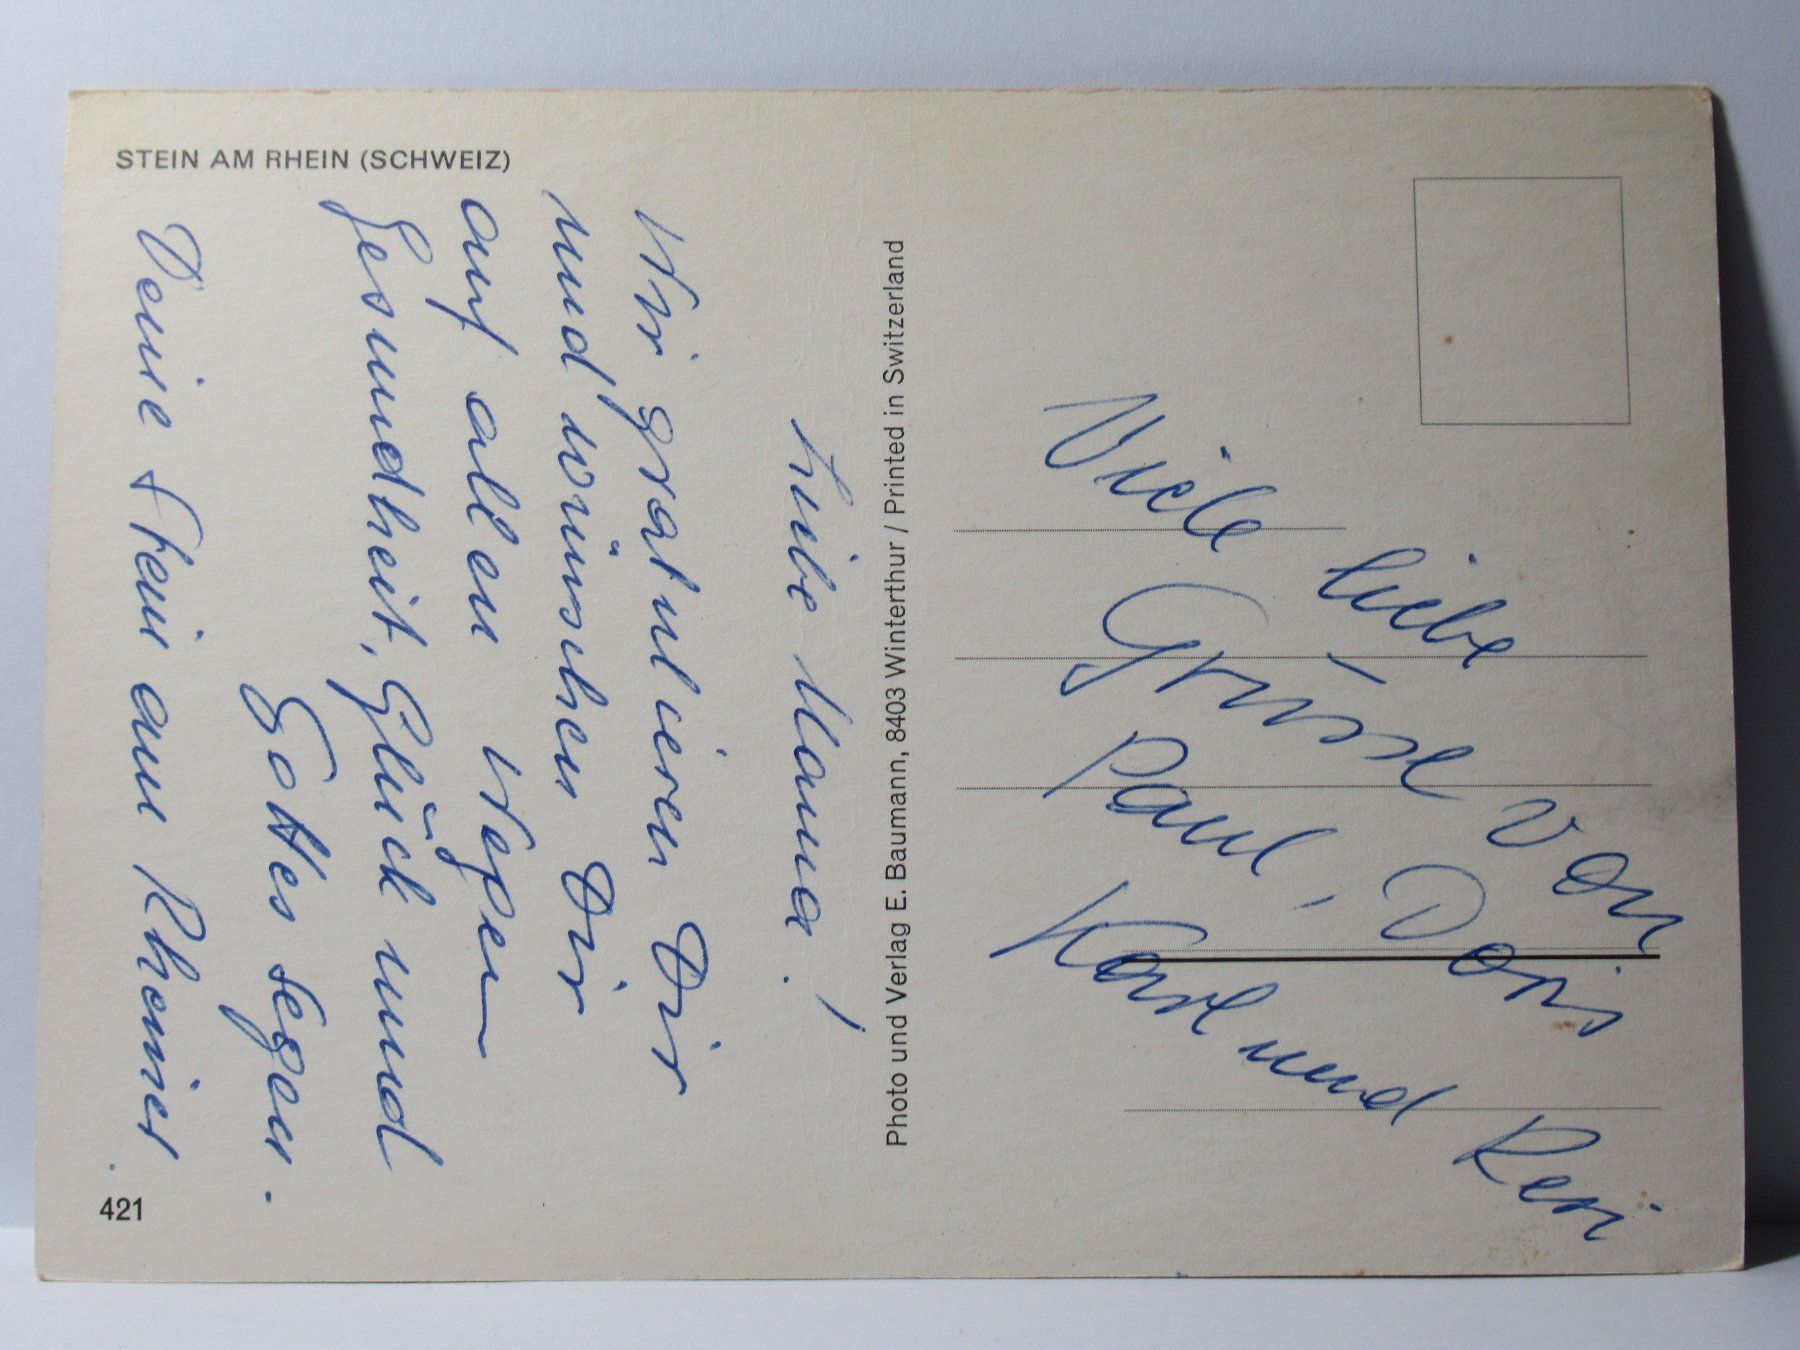 STEIN AM RHEIN (SCHWEIZ)
Liebe Mama!
Wir gratulieren Dir
und wünschen Dir
auf allen Wegen
Gesundheit, Glück und
Gottes Segen.
Deine Stein am Rheiner
421
Photo und Verlag E. Baumann, 8403 Winterthur / Printed in Switzerland
Viele liebe
Grüsse von
Paul, Doris
Karl und Reni